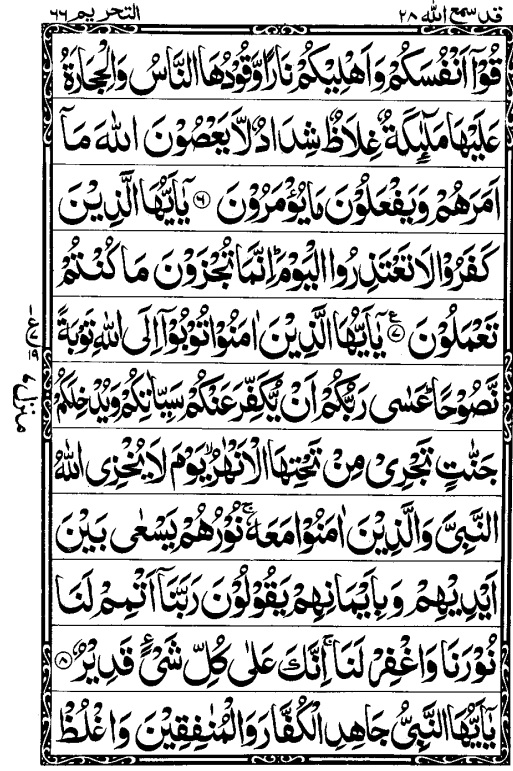 قد سمع الله ٢٨
التحريم ٦٦
قُوْۤا اَنْفُسَكُمْ وَاَهْلِيْكُمْ نَارًا وَّقُوْدُهَا النَّاسُ وَالْحِجَارَةُ
عَلَيْهَا مَلٰٓئِكَةٌ غِلَاظٌ شِدَادٌ لَّا يَعْصُوْنَ اللّٰهَ مَاۤ
اَمَرَهُمْ وَيَفْعَلُوْنَ مَا يُؤْمَرُوْنَ ۝٦ يٰۤاَيُّهَا الَّذِيْنَ
كَفَرُوْا لَا تَعْتَذِرُوا الْيَوْمَ ؕ اِنَّمَا تُجْزَوْنَ مَا كُنْتُمْ
تَعْمَلُوْنَ ۝٧ ع يٰۤاَيُّهَا الَّذِيْنَ اٰمَنُوْا تُوْبُوْۤا اِلَى اللّٰهِ تَوْبَةً
نَّصُوْحًا ؕ عَسٰى رَبُّكُمْ اَنْ يُّكَفِّرَ عَنْكُمْ سَيِّاٰتِكُمْ وَيُدْخِلَكُمْ
جَنّٰتٍ تَجْرِيْ مِنْ تَحْتِهَا الْاَنْهٰرُ ۙ يَوْمَ لَا يُخْزِى اللّٰهُ
النَّبِيَّ وَالَّذِيْنَ اٰمَنُوْا مَعَهٗ ۚ نُوْرُهُمْ يَسْعٰى بَيْنَ
اَيْدِيْهِمْ وَبِاَيْمَانِهِمْ يَقُوْلُوْنَ رَبَّنَاۤ اَتْمِمْ لَنَا
نُوْرَنَا وَاغْفِرْ لَنَا ۚ اِنَّكَ عَلٰى كُلِّ شَيْءٍ قَدِيْرٌ ۝٨
يٰۤاَيُّهَا النَّبِيُّ جَاهِدِ الْكُفَّارَ وَالْمُنٰفِقِيْنَ وَاغْلُظْ
ع ١٩
منزل